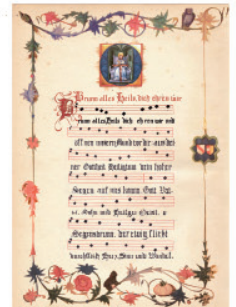 Brunn alles Heils, dich ehren wir
Brunn alles Heils dich ehren wir und
öffnen unsern Mund vor dir aus dei
ner Gottheit Heiligtum dein hoher
Segen auf uns komm. Gott Va-
Sohn und Heilger Geist, o
Segensbrunn, der ewig fließt
durchfließ Herz, Sinn und Wandel